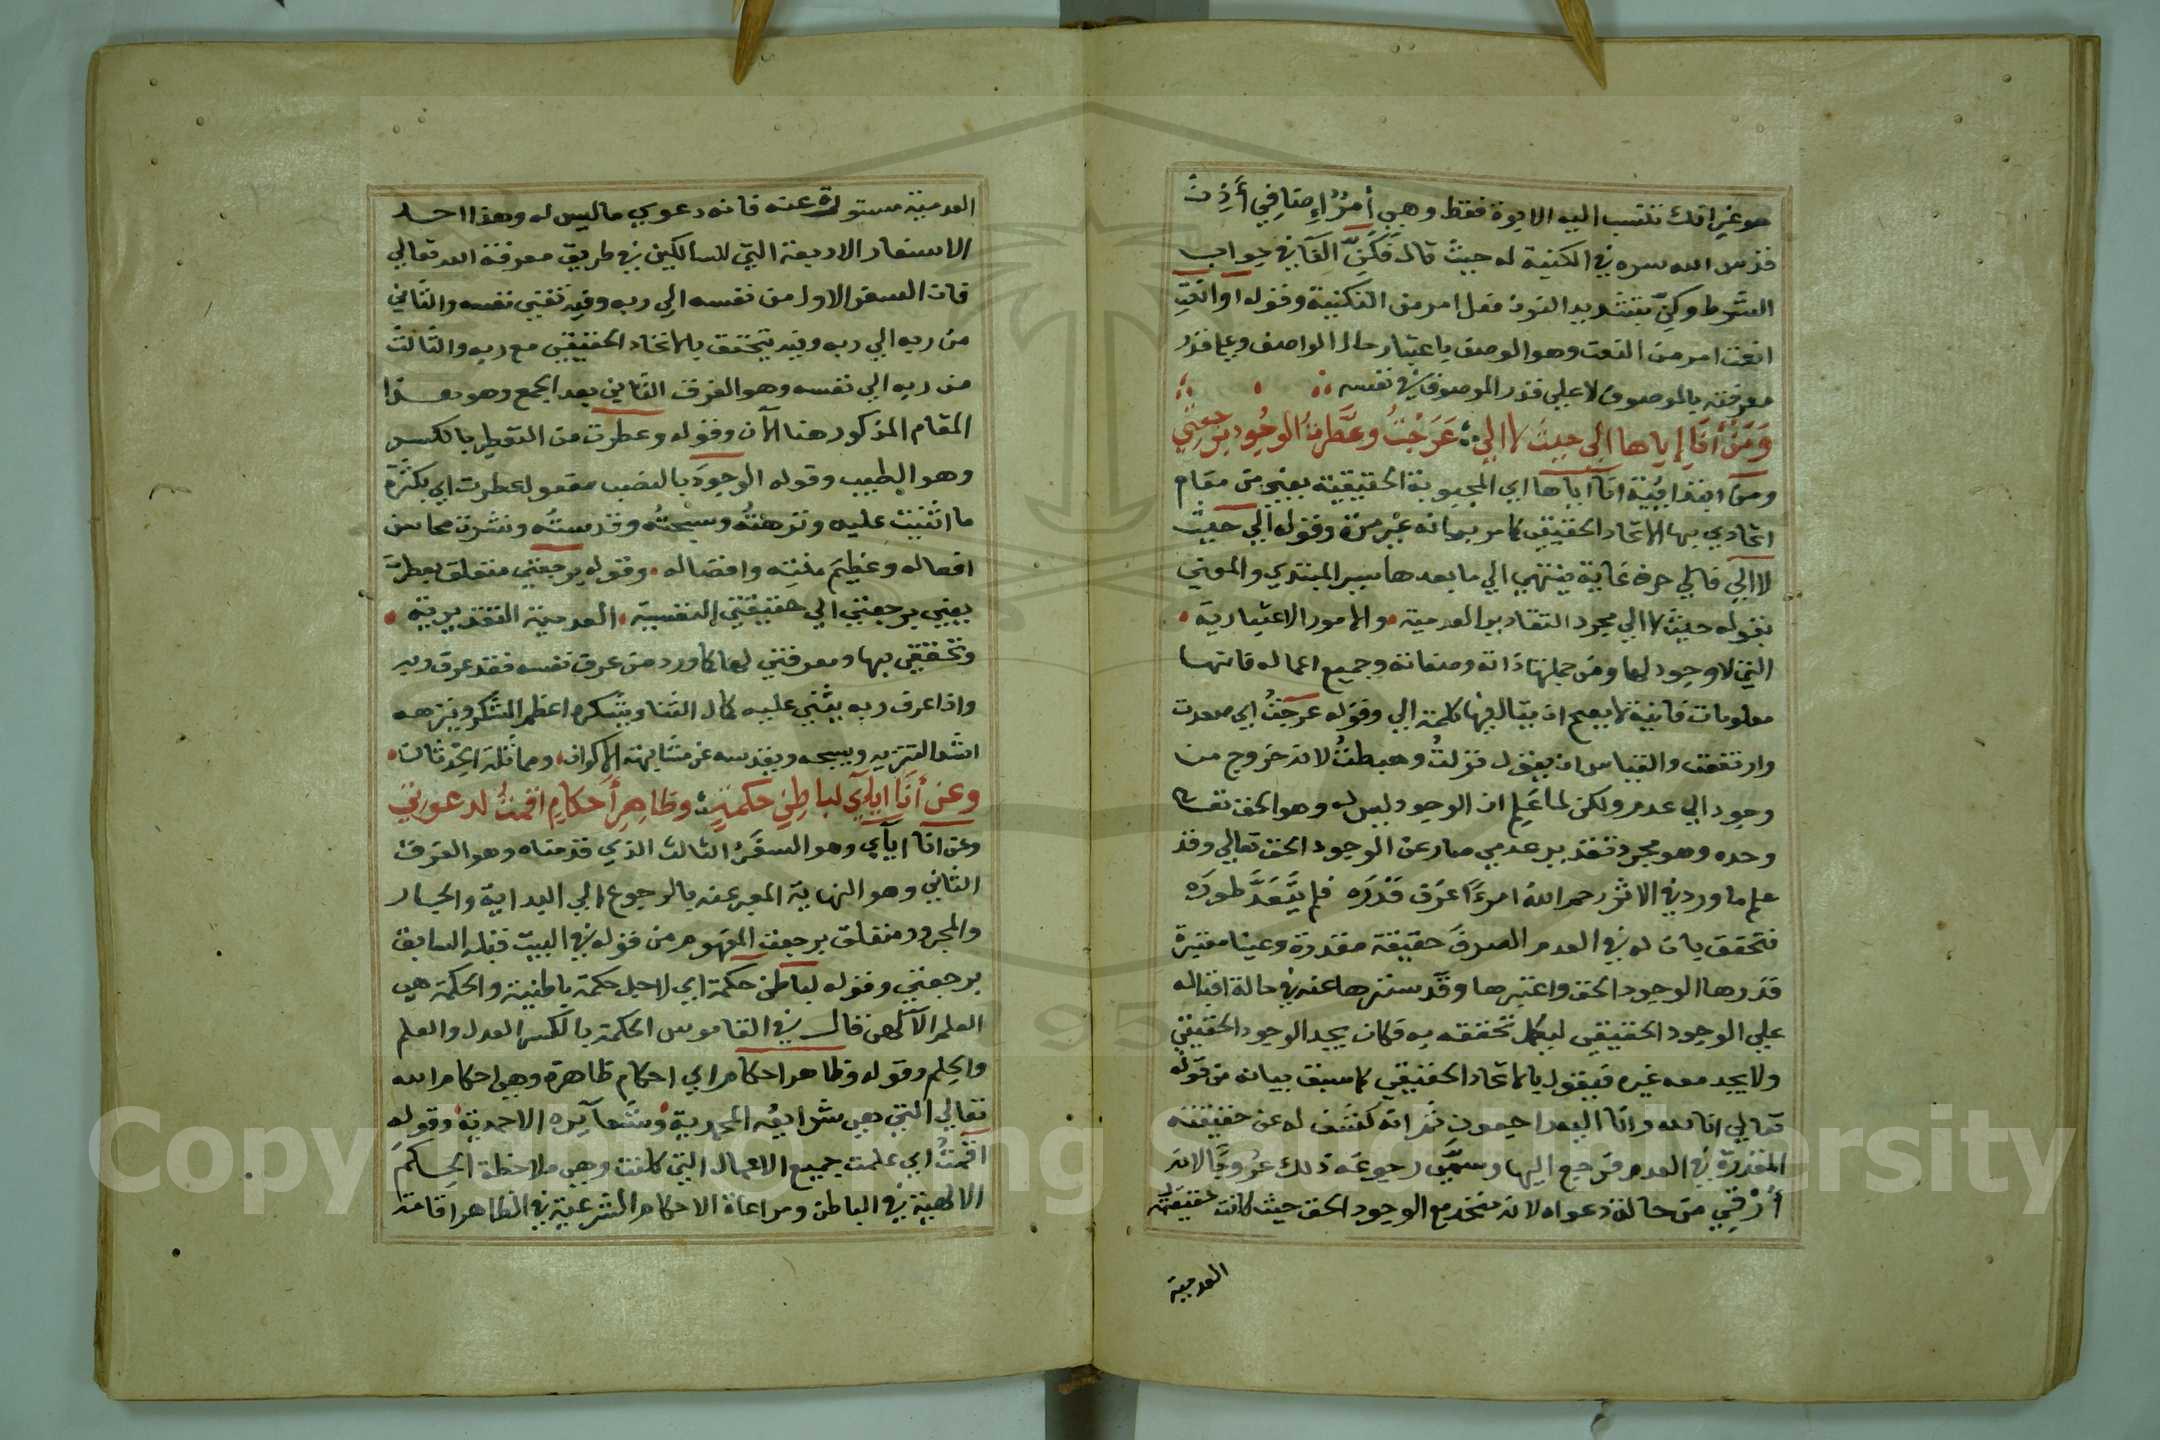 هو غير انك تنتسب اليه الابوة فقط وهي أمرٌ إصافي أذنت
قدس الله سره في الكنية له حيث قال فكنّ الفا في جواب
الشرط وكنّ بتشديد النون فعل امر من التكنية وقوله او انعت
انعت امر من النعت وهو الوصف باعتبار حال الواصف وعلي قدر
معرفته بالموصوف لا علي قدر الموصوف في نفسه
وَمِنْ أَنَا إياها الي حيث لا الي عَرَجْتُ وعَطَّرتُ الوجُود برجعتي
ومن ابتدائية انا اياها اي المحبوبة الحقيقية يعني من مقام
اتحادي بها الاتحاد الحقيقي كما مر بيانه غير مرة وقوله الي حيث
لا الي فالي حرف غاية ينتهي الي ما بعدها سير المبتدي والمعني
بقوله حيث لا الي مجرد التقادير العدمية والامور الاعتبارية
التي لا وجود لها ومن جملتها ذاته وصفاته وجميع اعماله فانها
معلومات فانية لا يصح ان يقال فيها كلمة الي وقوله عرجتُ اي صعدت
وارتفعت والقياس ان يقول نزلتُ وهبطتُ لانه خروج من
وجود الي عدم ولكن لما علم ان الوجود ليس له وهو الحق تعالي
وحده وهو مجرد تقدير عدمي صادر عن الوجود الحق تعالي وقد
علم ما ورد في الاثر رحم الله امرءً عرَف قَدْرَه فلم يتَعَدَّ طورَه
فتحقق بان له في العدم الصرف حقيقة مقدرة وعينا معتبرة
قدرها الوجود الحق واعتبرها وقد سترها عنه في حالة اقباله
علي الوجود الحقيقي ليكمل تحققه به فكان يجد الوجود الحقيقي
ولا يجد معه غيره فيقول بالاتحاد الحقيقي كما سبق بيانه من قوله
تعالي انا لله وانا اليه راجعون ثم انه كشف له عن حقيقته
المقدرة في العدم فرجع اليها وسمَّي رجوعه ذلك عروجًا لانه
أرْقي من حالة دعواه لانه متحد مع الوجود الحق حيث كانت حقيقته
العدمية
العدمية مستورة عنه فانه دعوي ما ليس له وهذا احد
الاسفار الاربعة التي للسالكين في طريق معرفة الله تعالي
فان السفر الاول من نفسه الي ربه وفيه تفني نفسه والثاني
من ربه الي ربه وفيه يتحقق بالاتحاد الحقيقي مع ربه والثالث
من ربه الي نفسه وهو الفرق الثاني بعد الجمع وهو هذا
المقام المذكور هنا الآن وقوله وعطرت من التعطير بالكسر
وهو الطيب وقوله الوجودَ بالنصب مفعول عطرت اي بكثرة
ما اثنيت عليه ونزهتُه وسبحتُه وقدستُه ونشرت محاسن
افعاله وعظيم مننه وافضاله وقوله برجعتي متعلق بعطرت
يعني برجعتي الي حقيقتي النفسية العدمية التقديرية
وتحققي بها ومعرفتي لها كما ورد من عرف نفسه فقد عرف ربه
واذا عرف ربه يثني عليه كمال الثنا ويشكره اعظم الشكر وينزهه
اشد التنزيه ويسبحه ويقدسه عن مشابهة الاكوان ومماثلة الحِدْثان
وعن أنَا ايايَ لباطِنِ حكمةٍ وظاهِرِ أحكامِ اقمتُ لدعوتي
وعن انا ايآي وهو السفَر الثالث الذي قدمناه وهو الفرق
الثاني وهو النهاية المعبر عنه بالرجوع الي البداية والجار
والمجرور متعلق برجعت المفهوم من قوله في البيت قبله السابق
برجعتي وقوله لباطن حكمة اي لاجل حكمة باطنية والحكمة هي
العلم الآلهي قال في القاموس الحكمة بالكسر العدل والعلم
والحِلم وقوله وظاهر احكام اي احكام ظاهرة وهي احكام الله
تعالي التي هي شرايعه المحمدية وشعآيره الاحمدية وقوله
اقمتُ اي علمت جميع الاعمال التي كلفت وهي ملاحظة الحِكم
الالهية في الباطن ومراعاة الاحكام الشرعية في الظاهر اقامة
Copyright © King Saud University